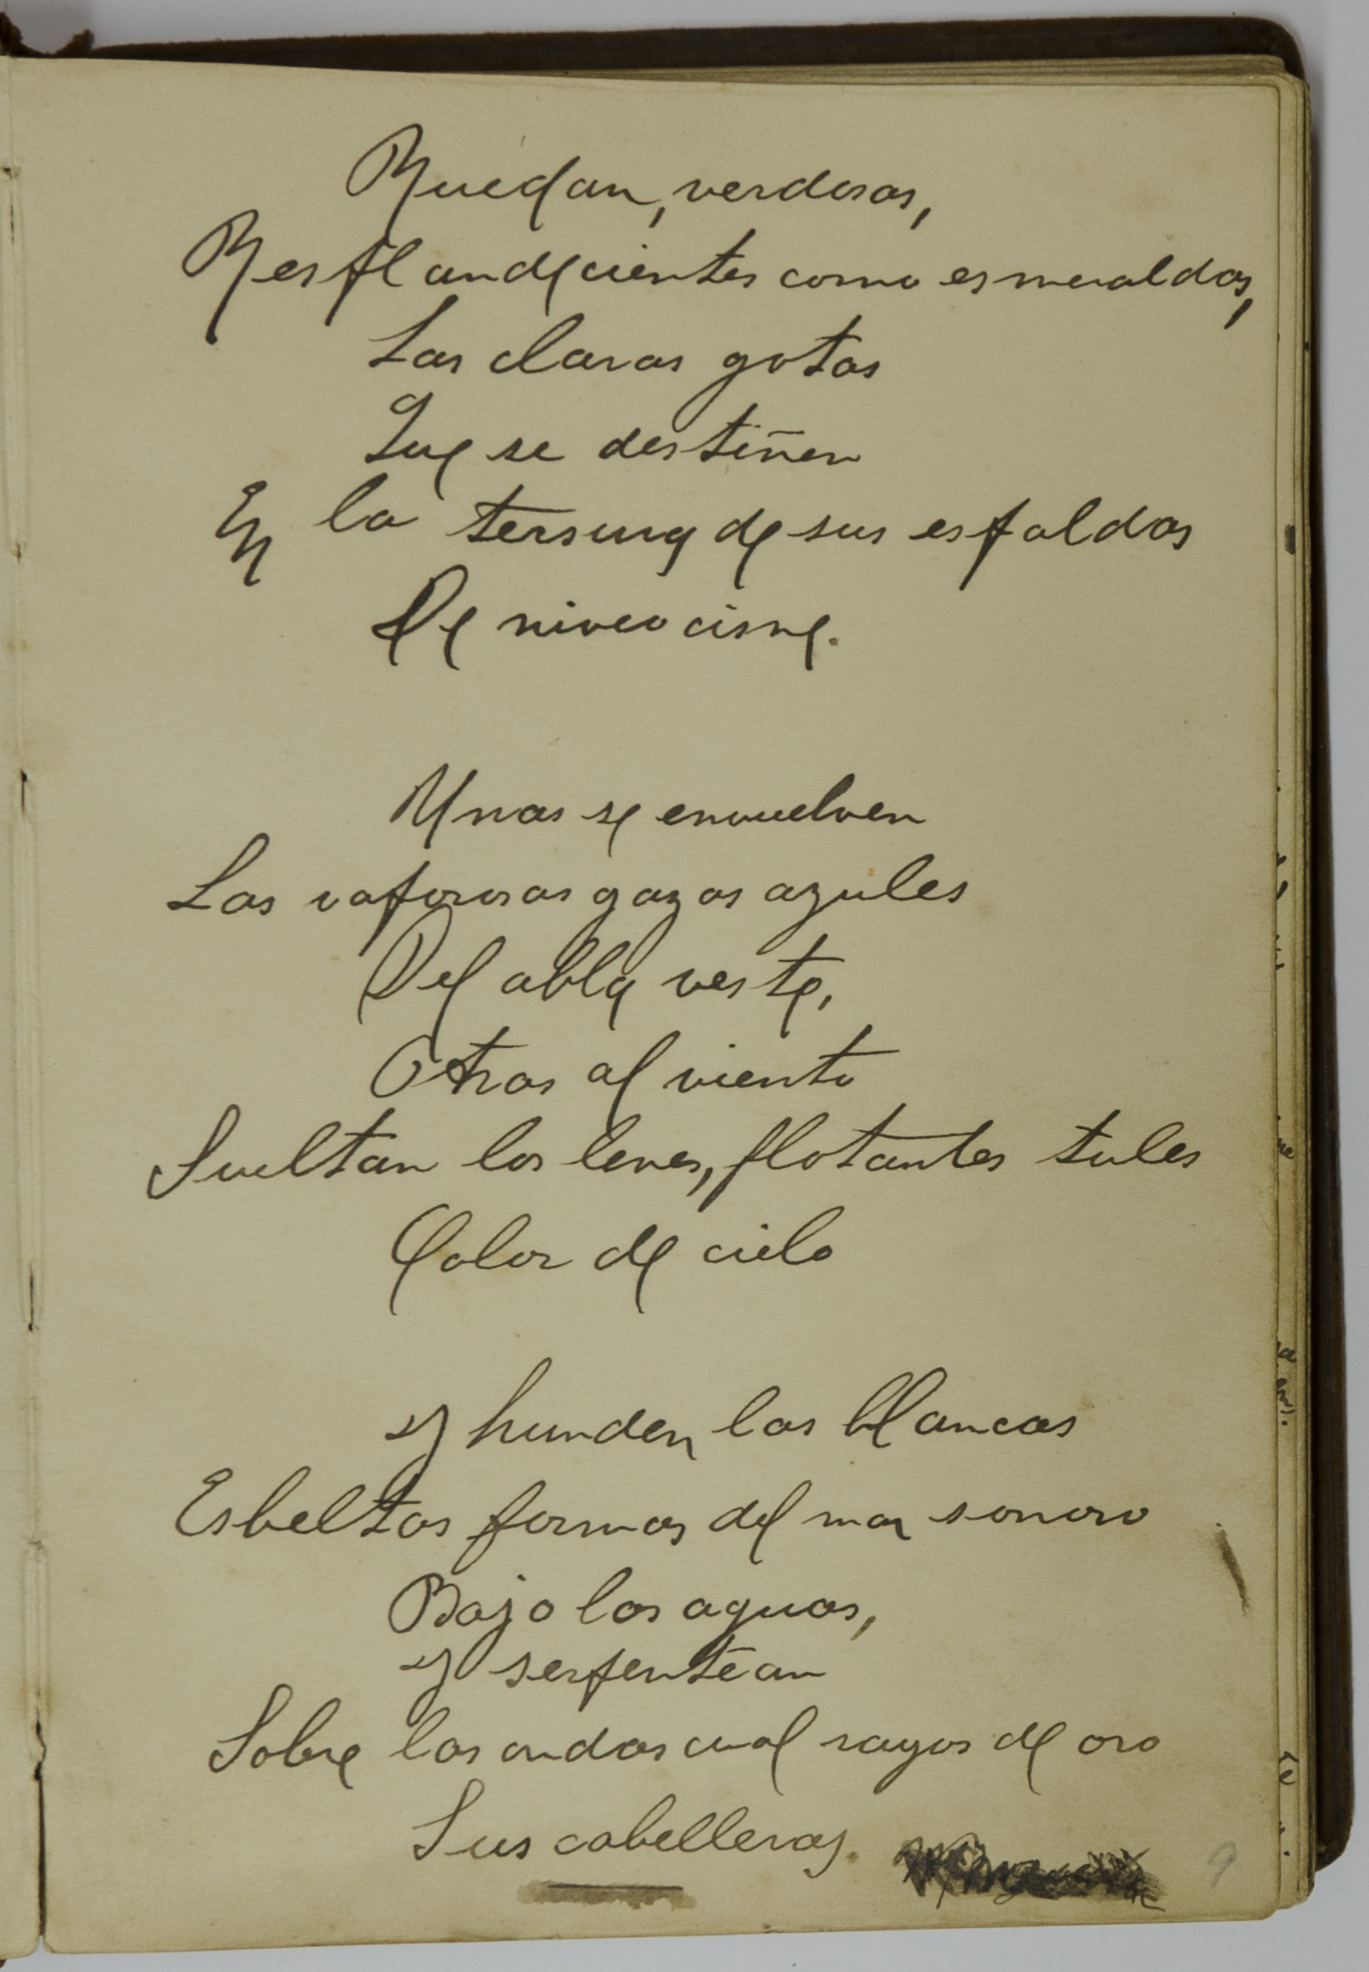 Ruedan, verdosas,
Resplandecientes como esmeraldas,
Las claras gotas
Que se destiñen
En la tersura de sus espaldas
De niveo cisne.
Unas se envuelven
Las vaporosas gazas azules
Del alba veste,
Otras al viento
Sueltan los leves, flotantes tules
Color de cielo
Y hunden las blancas
Esbeltas formas del mar sonoro
Bajo las aguas,
Y serpentean
Sobre las ondas cual rayos de oro
Sus cabelleras.
9